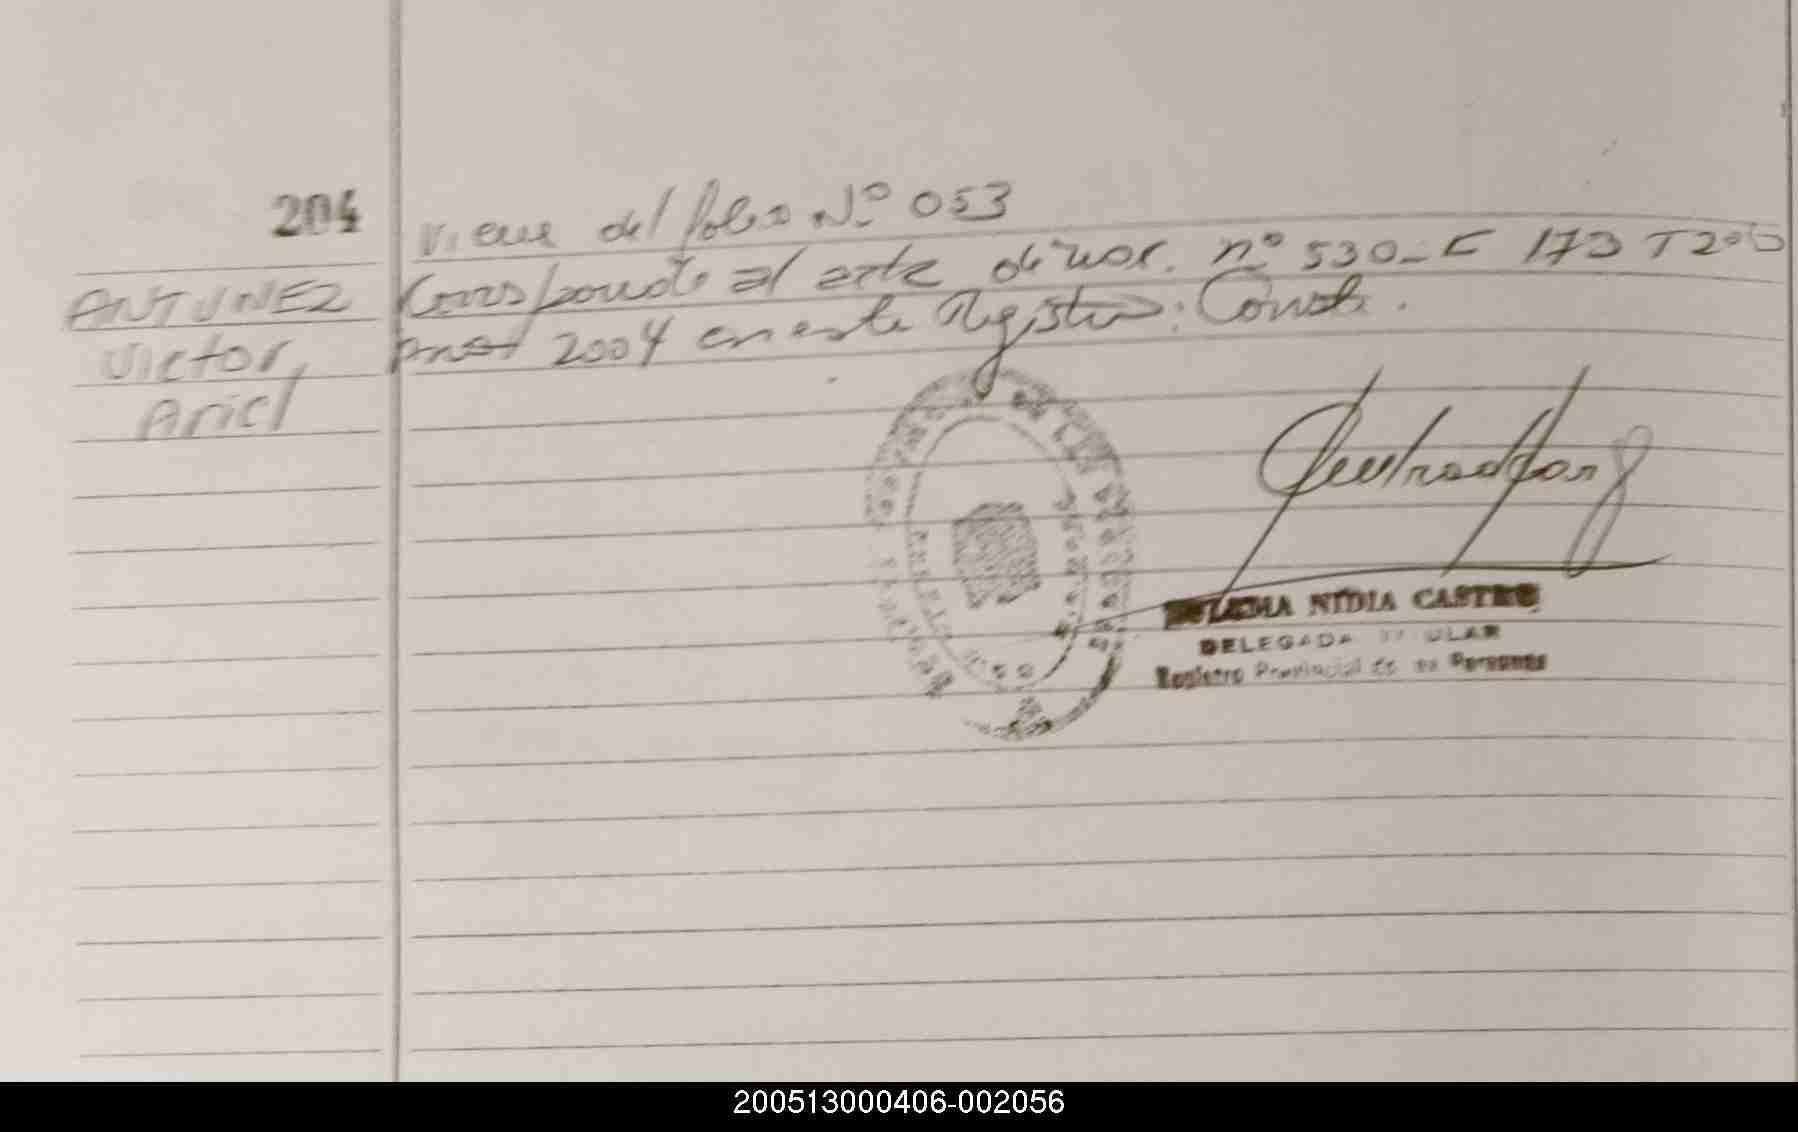 204
ANTUNEZ
Victor,
Ariel
Viene del folio N.º 053
Corresponde al acta de nac. nº 530-F 173 T 2º
2004 en este Registro: Conste.
NIDIA CASTRO
DELEGADA TITULAR
Registro Provincial de las Personas
200513000406-002056